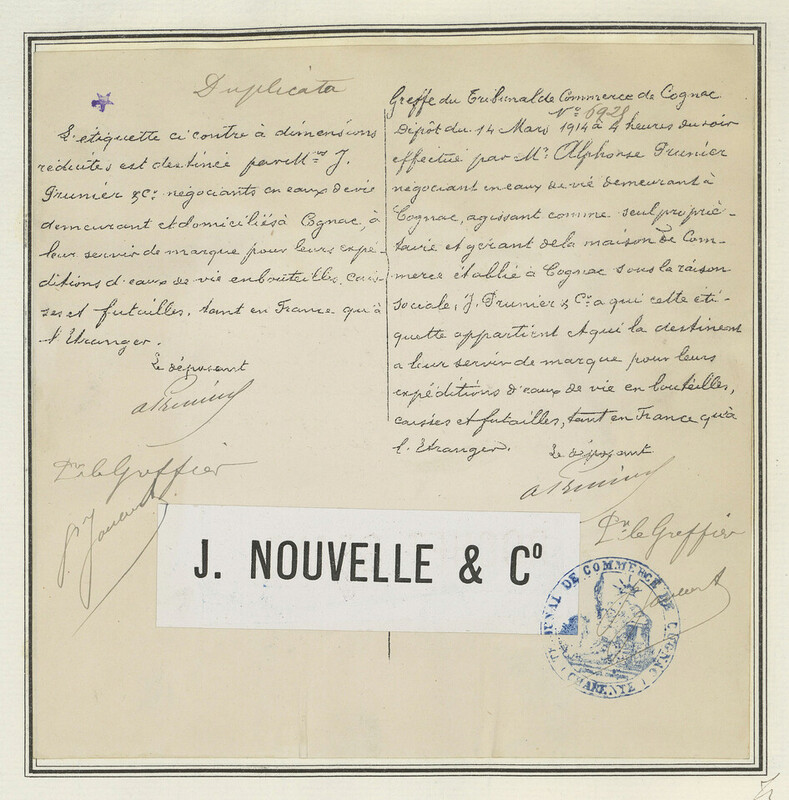 Duplicata
L'étiquette ci contre à dimensions
réduites est destinée par Mrs J.
Prunier & Cie négociants en eaux de vie
demeurant et domiciliés à Cognac, à
leur servir de marque pour leurs expé-
ditions d'eaux de vie en bouteilles, cais-
ses et futailles, tant en France qu'à
l'Etranger.
Le déposant
A Prunier
Pr le Greffier
Greffe du Tribunal de Commerce de Cognac
No 6928
Dépôt du 14 Mars 1914 à 4 heures du soir
effectué par Mr. Alphonse Prunier
négociant en eaux de vie demeurant à
Cognac, agissant comme seul proprié-
taire et gérant de la maison de Com-
merce établie à Cognac sous la raison
sociale, J. Prunier & Cie a qui cette éti-
quette appartient et qui la destinent
a leur servir de marque pour leurs
expéditions d'eaux de vie en bouteilles,
caisses et futailles, tant en France qu'à
l'Etranger.
Le déposant
A Prunier
Pr le Greffier
J. NOUVELLE & Co
TRIBUNAL DE COMMERCE DE COGNAC
(CHARENTE)